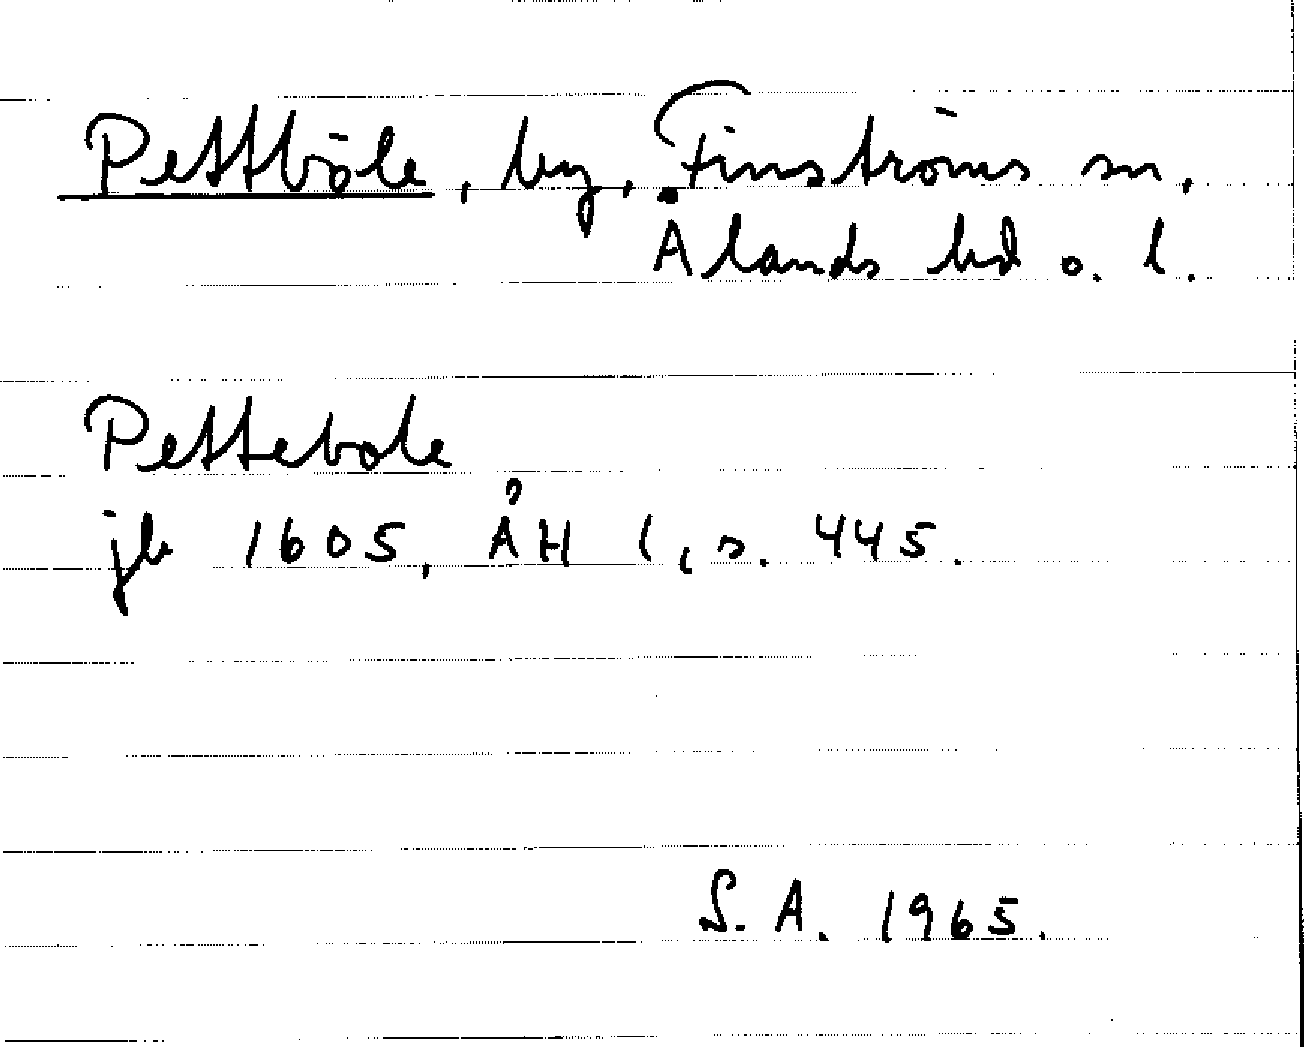 Pettböle, by, Finströms sn,
Ålands hd o. l.
Pettebole
jb 1605, ÅH I, s. 445.
S. A. 1965.